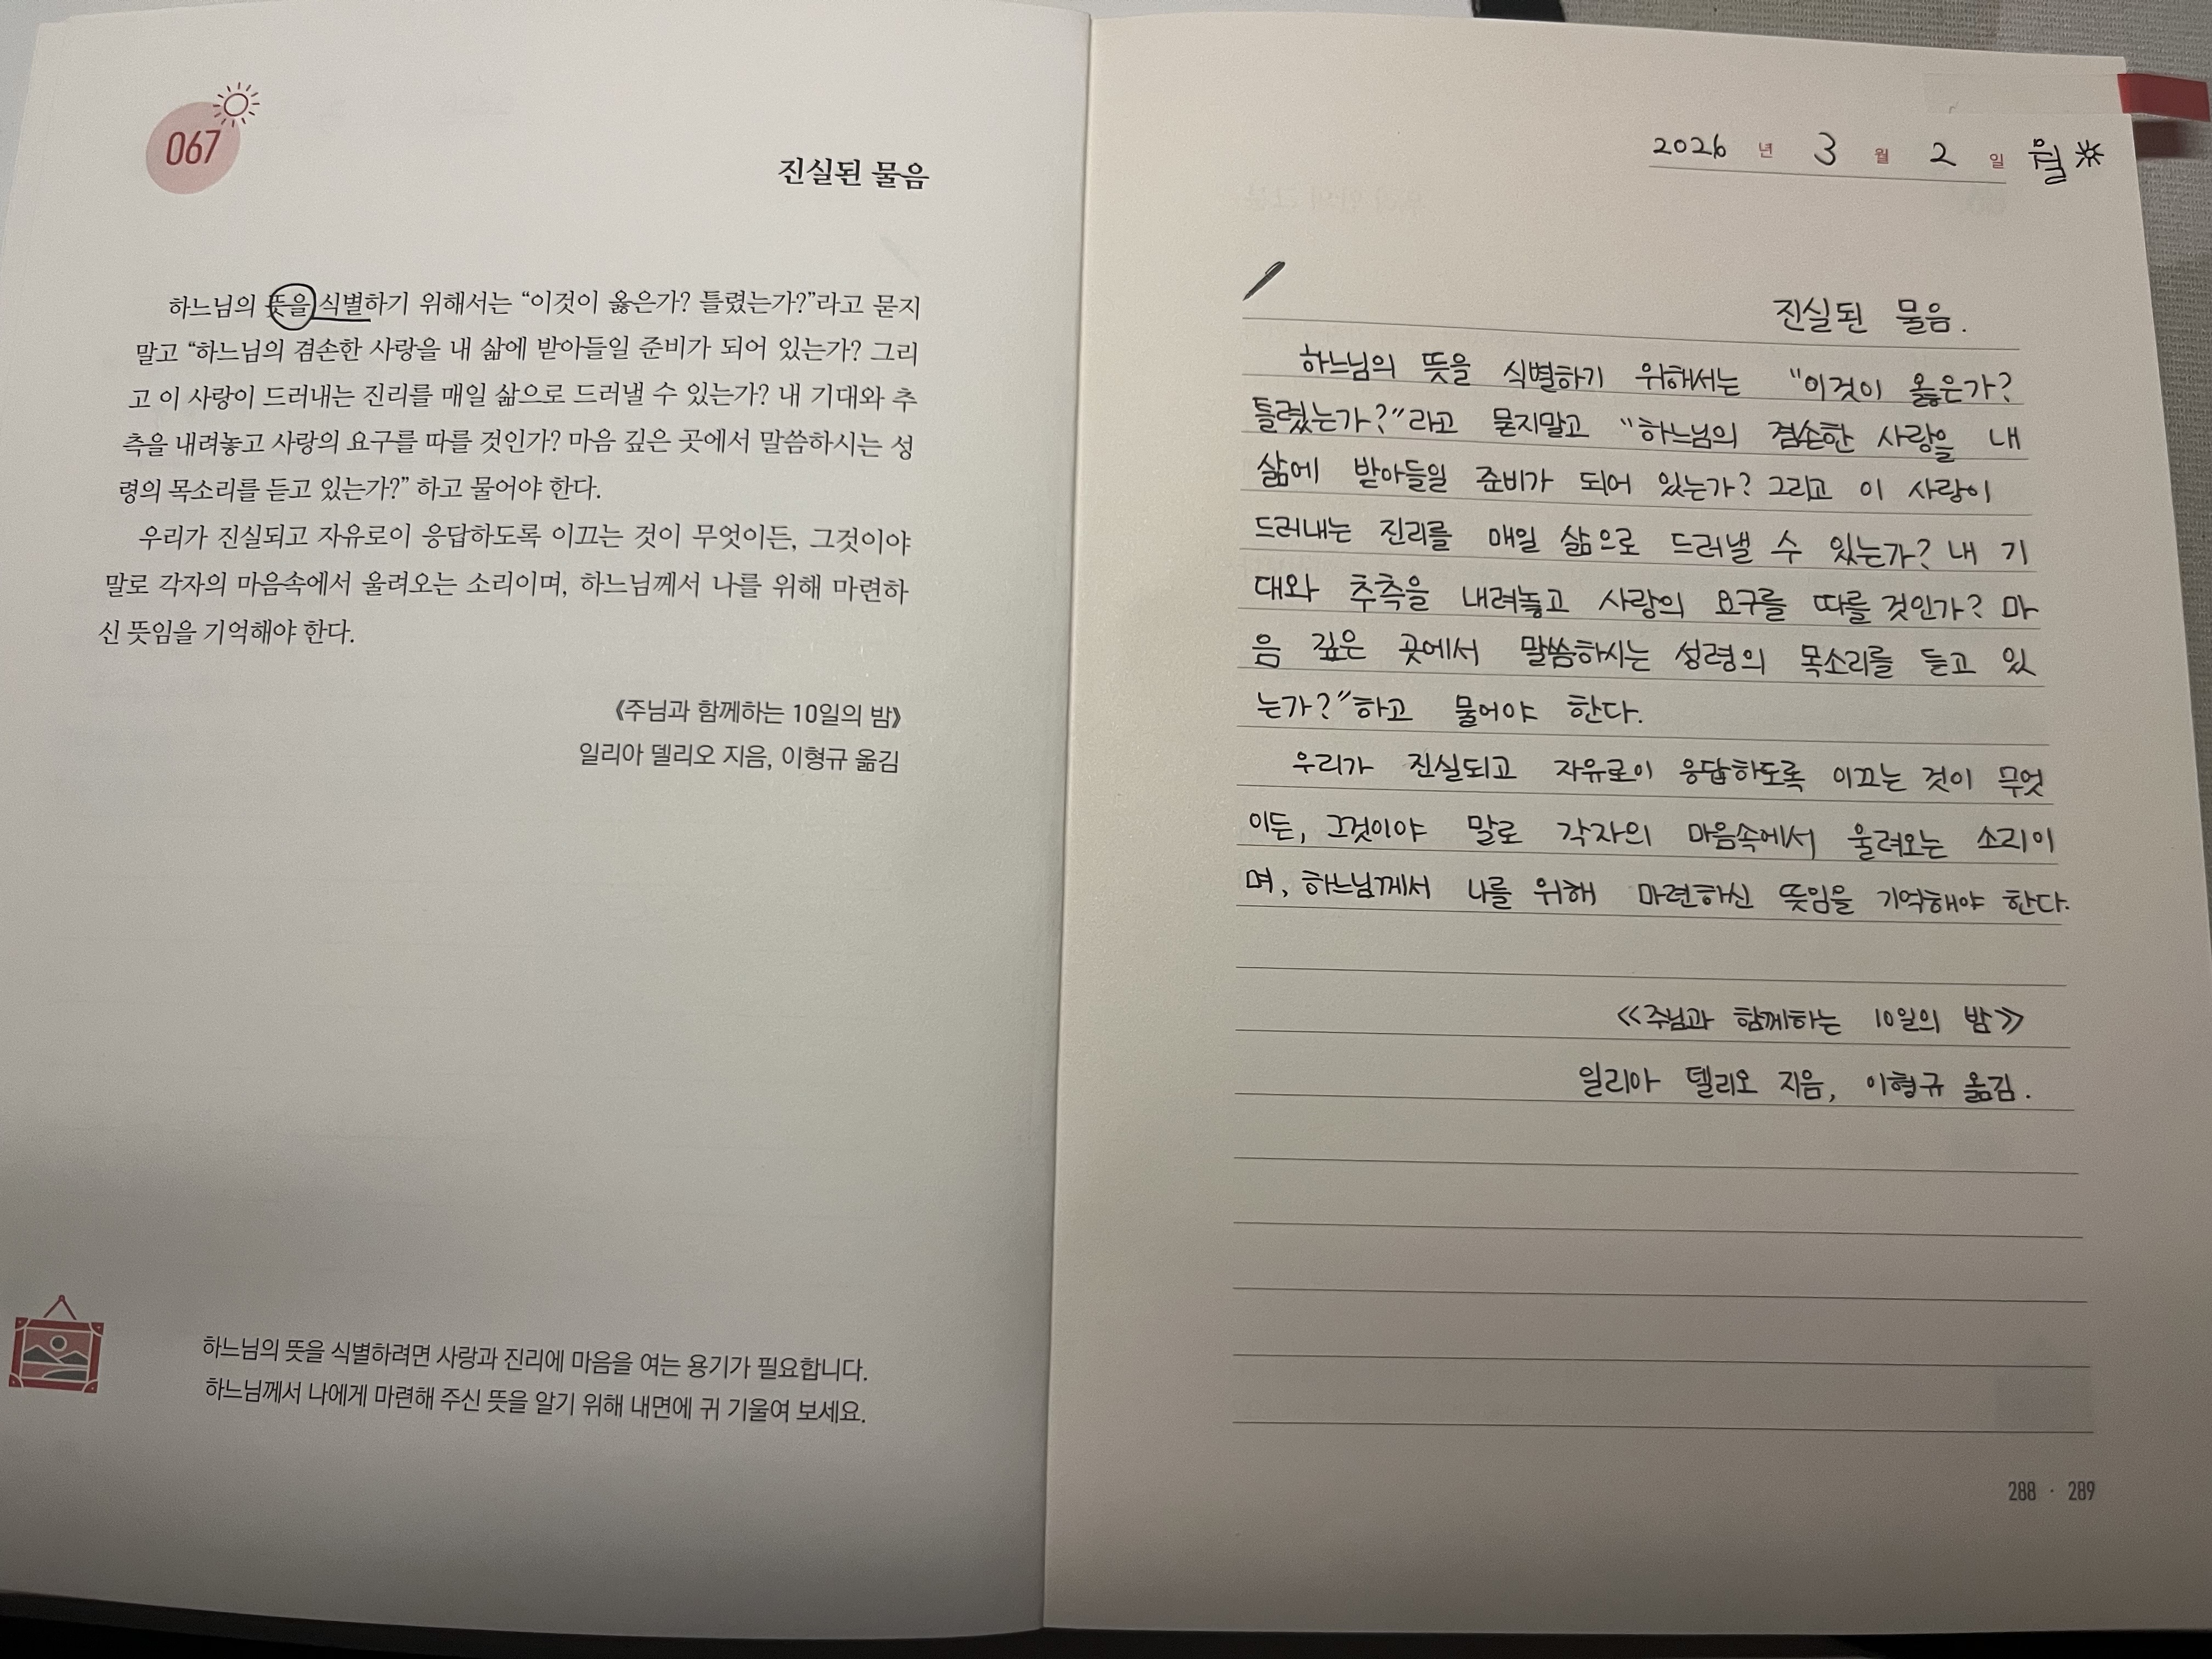 067
진실된 물음
하느님의 뜻을 식별하기 위해서는 “이것이 옳은가? 틀렸는가?”라고 묻지
말고 “하느님의 겸손한 사랑을 내 삶에 받아들일 준비가 되어 있는가? 그리
고 이 사랑이 드러내는 진리를 매일 삶으로 드러낼 수 있는가? 내 기대와 추
측을 내려놓고 사랑의 요구를 따를 것인가? 마음 깊은 곳에서 말씀하시는 성
령의 목소리를 듣고 있는가?” 하고 물어야 한다.
우리가 진실되고 자유로이 응답하도록 이끄는 것이 무엇이든, 그것이야
말로 각자의 마음속에서 울려오는 소리이며, 하느님께서 나를 위해 마련하
신 뜻임을 기억해야 한다.
《주님과 함께하는 10일의 밤》
일리아 델리오 지음, 이형규 옮김
하느님의 뜻을 식별하려면 사랑과 진리에 마음을 여는 용기가 필요합니다.
하느님께서 나에게 마련해 주신 뜻을 알기 위해 내면에 귀 기울여 보세요.
2026 년 3 월 2 일 월
진실된 물음.
하느님의 뜻을 식별하기 위해서는 “이것이 옳은가?
틀렸는가?”라고 묻지말고 “하느님의 겸손한 사랑을 내
삶에 받아들일 준비가 되어 있는가? 그리고 이 사랑이
드러내는 진리를 매일 삶으로 드러낼 수 있는가? 내 기
대와 추측을 내려놓고 사랑의 요구를 따를 것인가? 마
음 깊은 곳에서 말씀하시는 성령의 목소리를 듣고 있
는가?”하고 물어야 한다.
우리가 진실되고 자유로이 응답하도록 이끄는 것이 무엇
이든, 그것이야 말로 각자의 마음속에서 울려오는 소리이
며, 하느님께서 나를 위해 마련하신 뜻임을 기억해야 한다.
《주님과 함께하는 10일의 밤》
일리아 델리오 지음, 이형규 옮김.
288 · 289